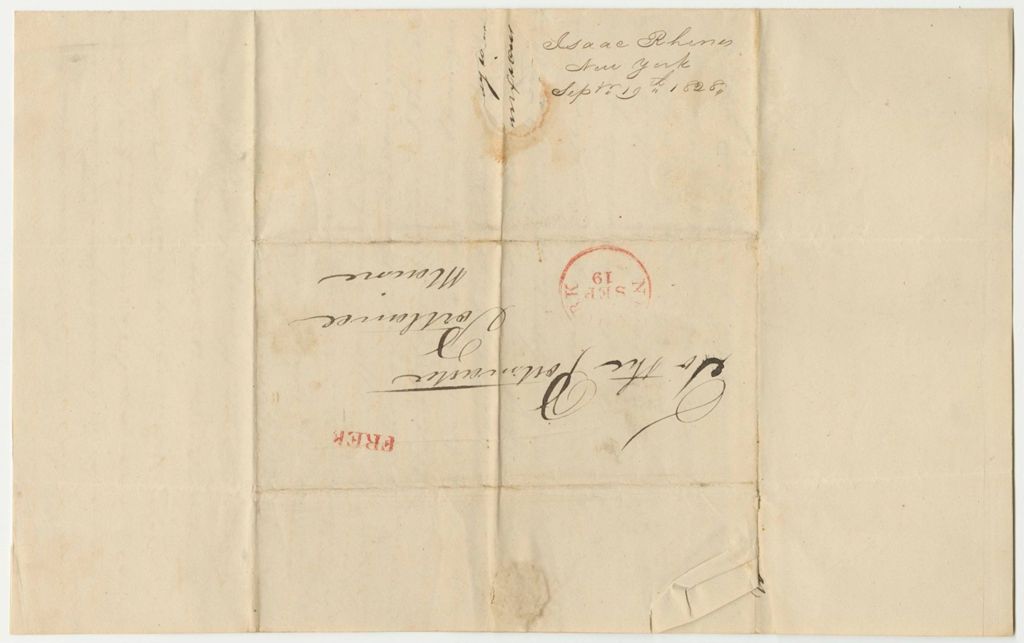 Isaac Rhines
New York
Sept. 19th 1828
SEP
19
RK
Maine
Portland
To the Postmaster
FREE